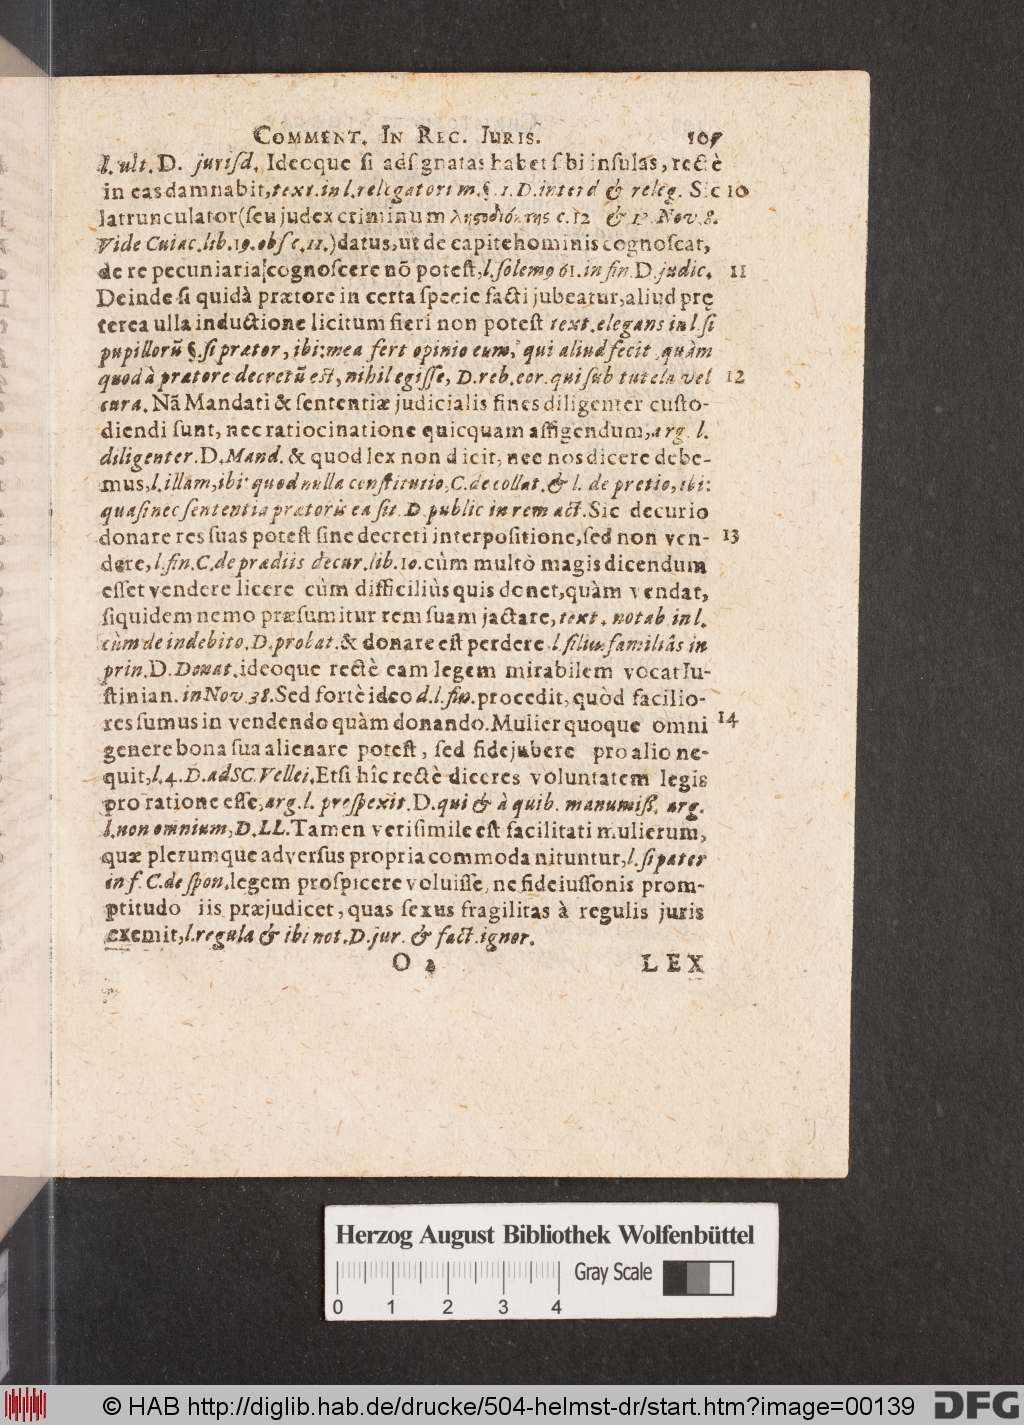 COMMENT. IN REC. IURIS. 107
l. ult. D. jurisd. Ideoque si adsignatas habet sibi insulas, rectè
in eas damnabit, text. in l. relegatorum. §. 1. D. interd & releg. Sic 10
latrunculator (seu judex criminum ληστοδιόκτης c. 12 & 13. Nov. 8.
Vide Cuiac. lib. 19. obs c. 11.) datus, ut de capite hominis cognoscat,
de re pecuniaria cognoscere nō potest, l. solemo 61. in fin. D. judic. 11
Deinde si quid à prætore in certa specie facti jubeatur, aliud prę
terea ulla inductione licitum fieri non potest text. elegans in l. si
pupillorū §. si prætor, ibi: mea fert opinio eum, qui aliud fecit quàm
quod à prætore decretū est, nihil egisse, D. reb. eor. qui sub tutela vel 12
cura. Nā Mandati & sententiæ judicialis fines diligenter custo-
diendi sunt, nec ratiocinatione quicquam affigendum, arg. l.
diligenter. D. Mand. & quod lex non dicit, nec nos dicere debe-
mus, l. illam, ibi: quod nulla constitutio, C. de collat. & l. de pretio, ibi:
quasi nec sententia prætoris ea sit. D. public in rem act. Sic decurio
donare res suas potest sine decreti interpositione, sed non ven- 13
dere, l. fin. C. de prædiis decur. lib. 10. cùm multò magis dicendum
esset vendere licere cùm difficiliùs quis donet, quàm vendat,
siquidem nemo præsumitur rem suam jactare, text. notab. in l.
cùm de indebito. D. probat. & donare est perdere l. filius familiâs in
prin. D. Donat. ideoque rectè eam legem mirabilem vocat Iu-
stinian. in Nov. 38. Sed fortè ideo d. l. fin. procedit, quòd facilio-
res sumus in vendendo quàm donando. Mulier quoque omni 14
genere bona sua alienare potest, sed fidejubere pro alio ne-
quit, l. 4. D. ad SC. Vellei. Etsi hîc rectè diceres voluntatem legis
pro ratione esse, arg. l. prospexit. D. qui & à quib. manumiss. arg.
l. non omnium, D. LL. Tamen verisimile est facilitati mulierum,
quæ plerumque adversus propria commoda nituntur, l. si pater
in f. C. de spon, legem prospicere voluisse, ne fideiussonis prom-
ptitudo iis præjudicet, quas sexus fragilitas à regulis juris
exemit, l. regula & ibi not. D. jur. & fact. ignor.
O 2 LEX
Herzog August Bibliothek Wolfenbüttel
Gray Scale
0 1 2 3 4
© HAB http://diglib.hab.de/drucke/504-helmst-dr/start.htm?image=00139 DFG